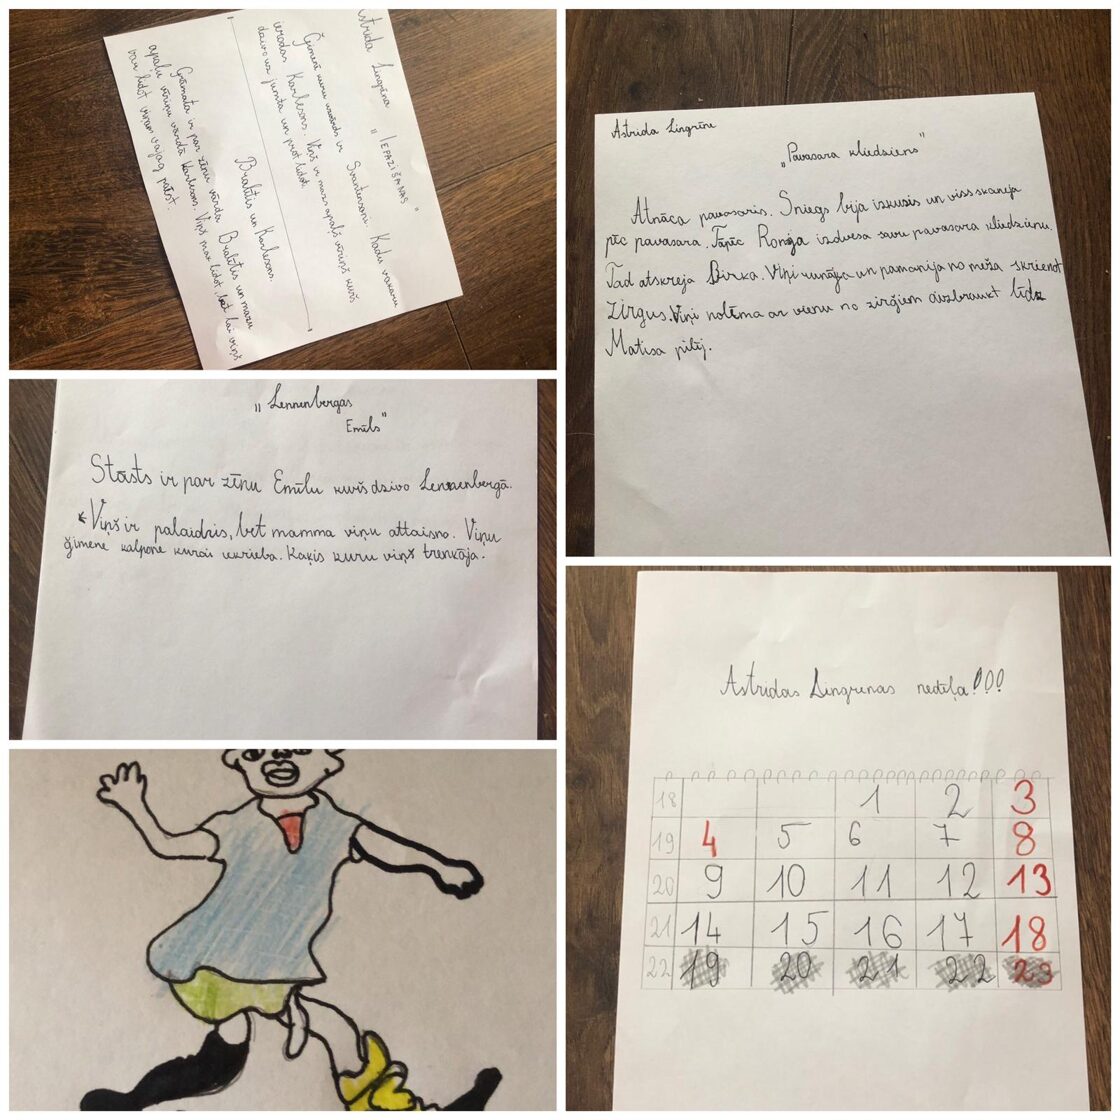 Astrida Lingrēna
„IEPAZIŠANĀS"
Ģimenē kuru uzvārds ir Svantensoni. Kādu vakaru
ierodas Karlesons. Viņš ir mazs apaļš vīriņš kurš
dzīvo uz jumta un prot lidot.
Brālītis un Karlesons.
Grāmata ir par zēnu vārdā Brālītis un mazu
apaļu vīriņu vārdā Karlesons. Viņš māk lidot, bet lai viņš
var lidot viņam vajag pāest.
Astrida Lingrēne
„Pavasara kliedziens"
Atnāca pavasaris. Sniegs bija izkusis un viss skanēja
pēc pavasara. Tāpēc Ronja izdvesa savu pavasara kliedzienu.
Tad atskrēja Birka. Viņi runāja un pamanīja no meža skrient
zirgus. Viņi nolēma ar vienu no zirgiem aizbraukt līdz
Matisa pilij.
„Lennenbergas
Emīls"
Stāsts ir par zēnu Emīlu kurš dzīvo Lennenbergā.
Viņš ir palaidnis, bet mamma viņu attaisno. Viņu
ģimenē kalpone kurai ir
kaķis kuru viņš trenkāja.
Astridas Lingrēnas nedēļa!!!
18 1 2 3
19 4 5 6 7 8
20 9 10 11 12 13
21 14 15 16 17 18
22 19 20 21 22 23